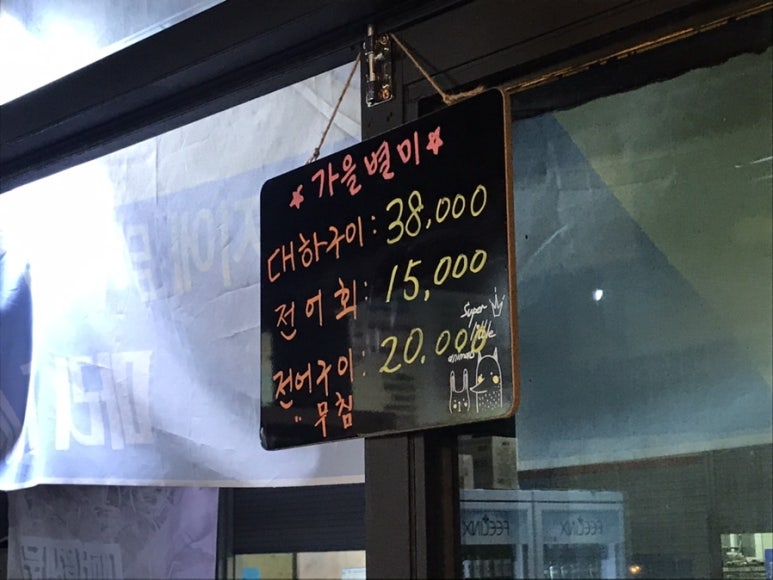 ★ 가을별미 ★
대하구이: 38,000
전어회: 15,000
전어구이: 20,000
〃 무침
Super
little
animals
FEELINX
FEELINX